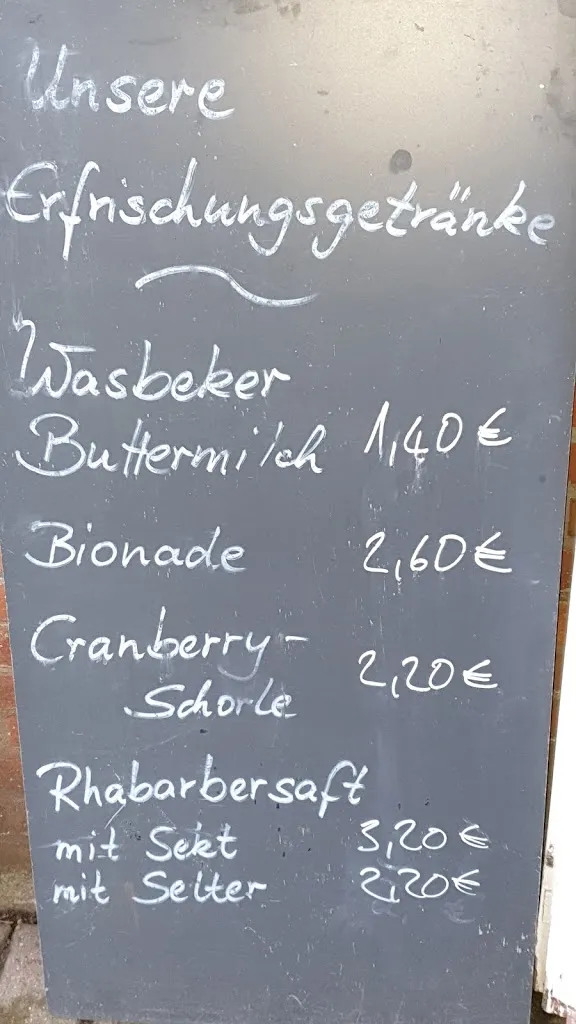 Unsere
Erfrischungsgetränke
Wasbeker
Buttermilch 1,40 €
Bionade 2,60 €
Cranberry-
Schorle 2,20 €
Rhabarbersaft
mit Sekt 3,20 €
mit Selter 2,20 €